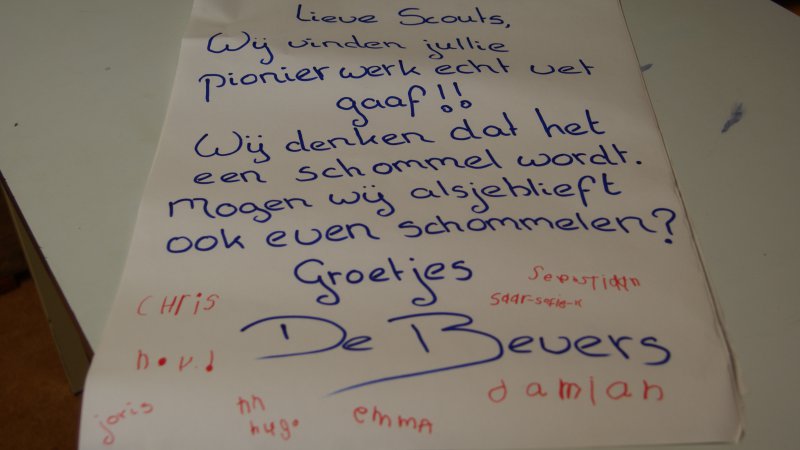 Lieve Scouts,
Wij vinden jullie
pionierwerk echt vet
gaaf!!
Wij denken dat het
een schommel wordt.
Mogen wij alsjeblieft
ook even schommelen?
Groetjes
De Bevers
CHris
joris
hugo
emmA
damian